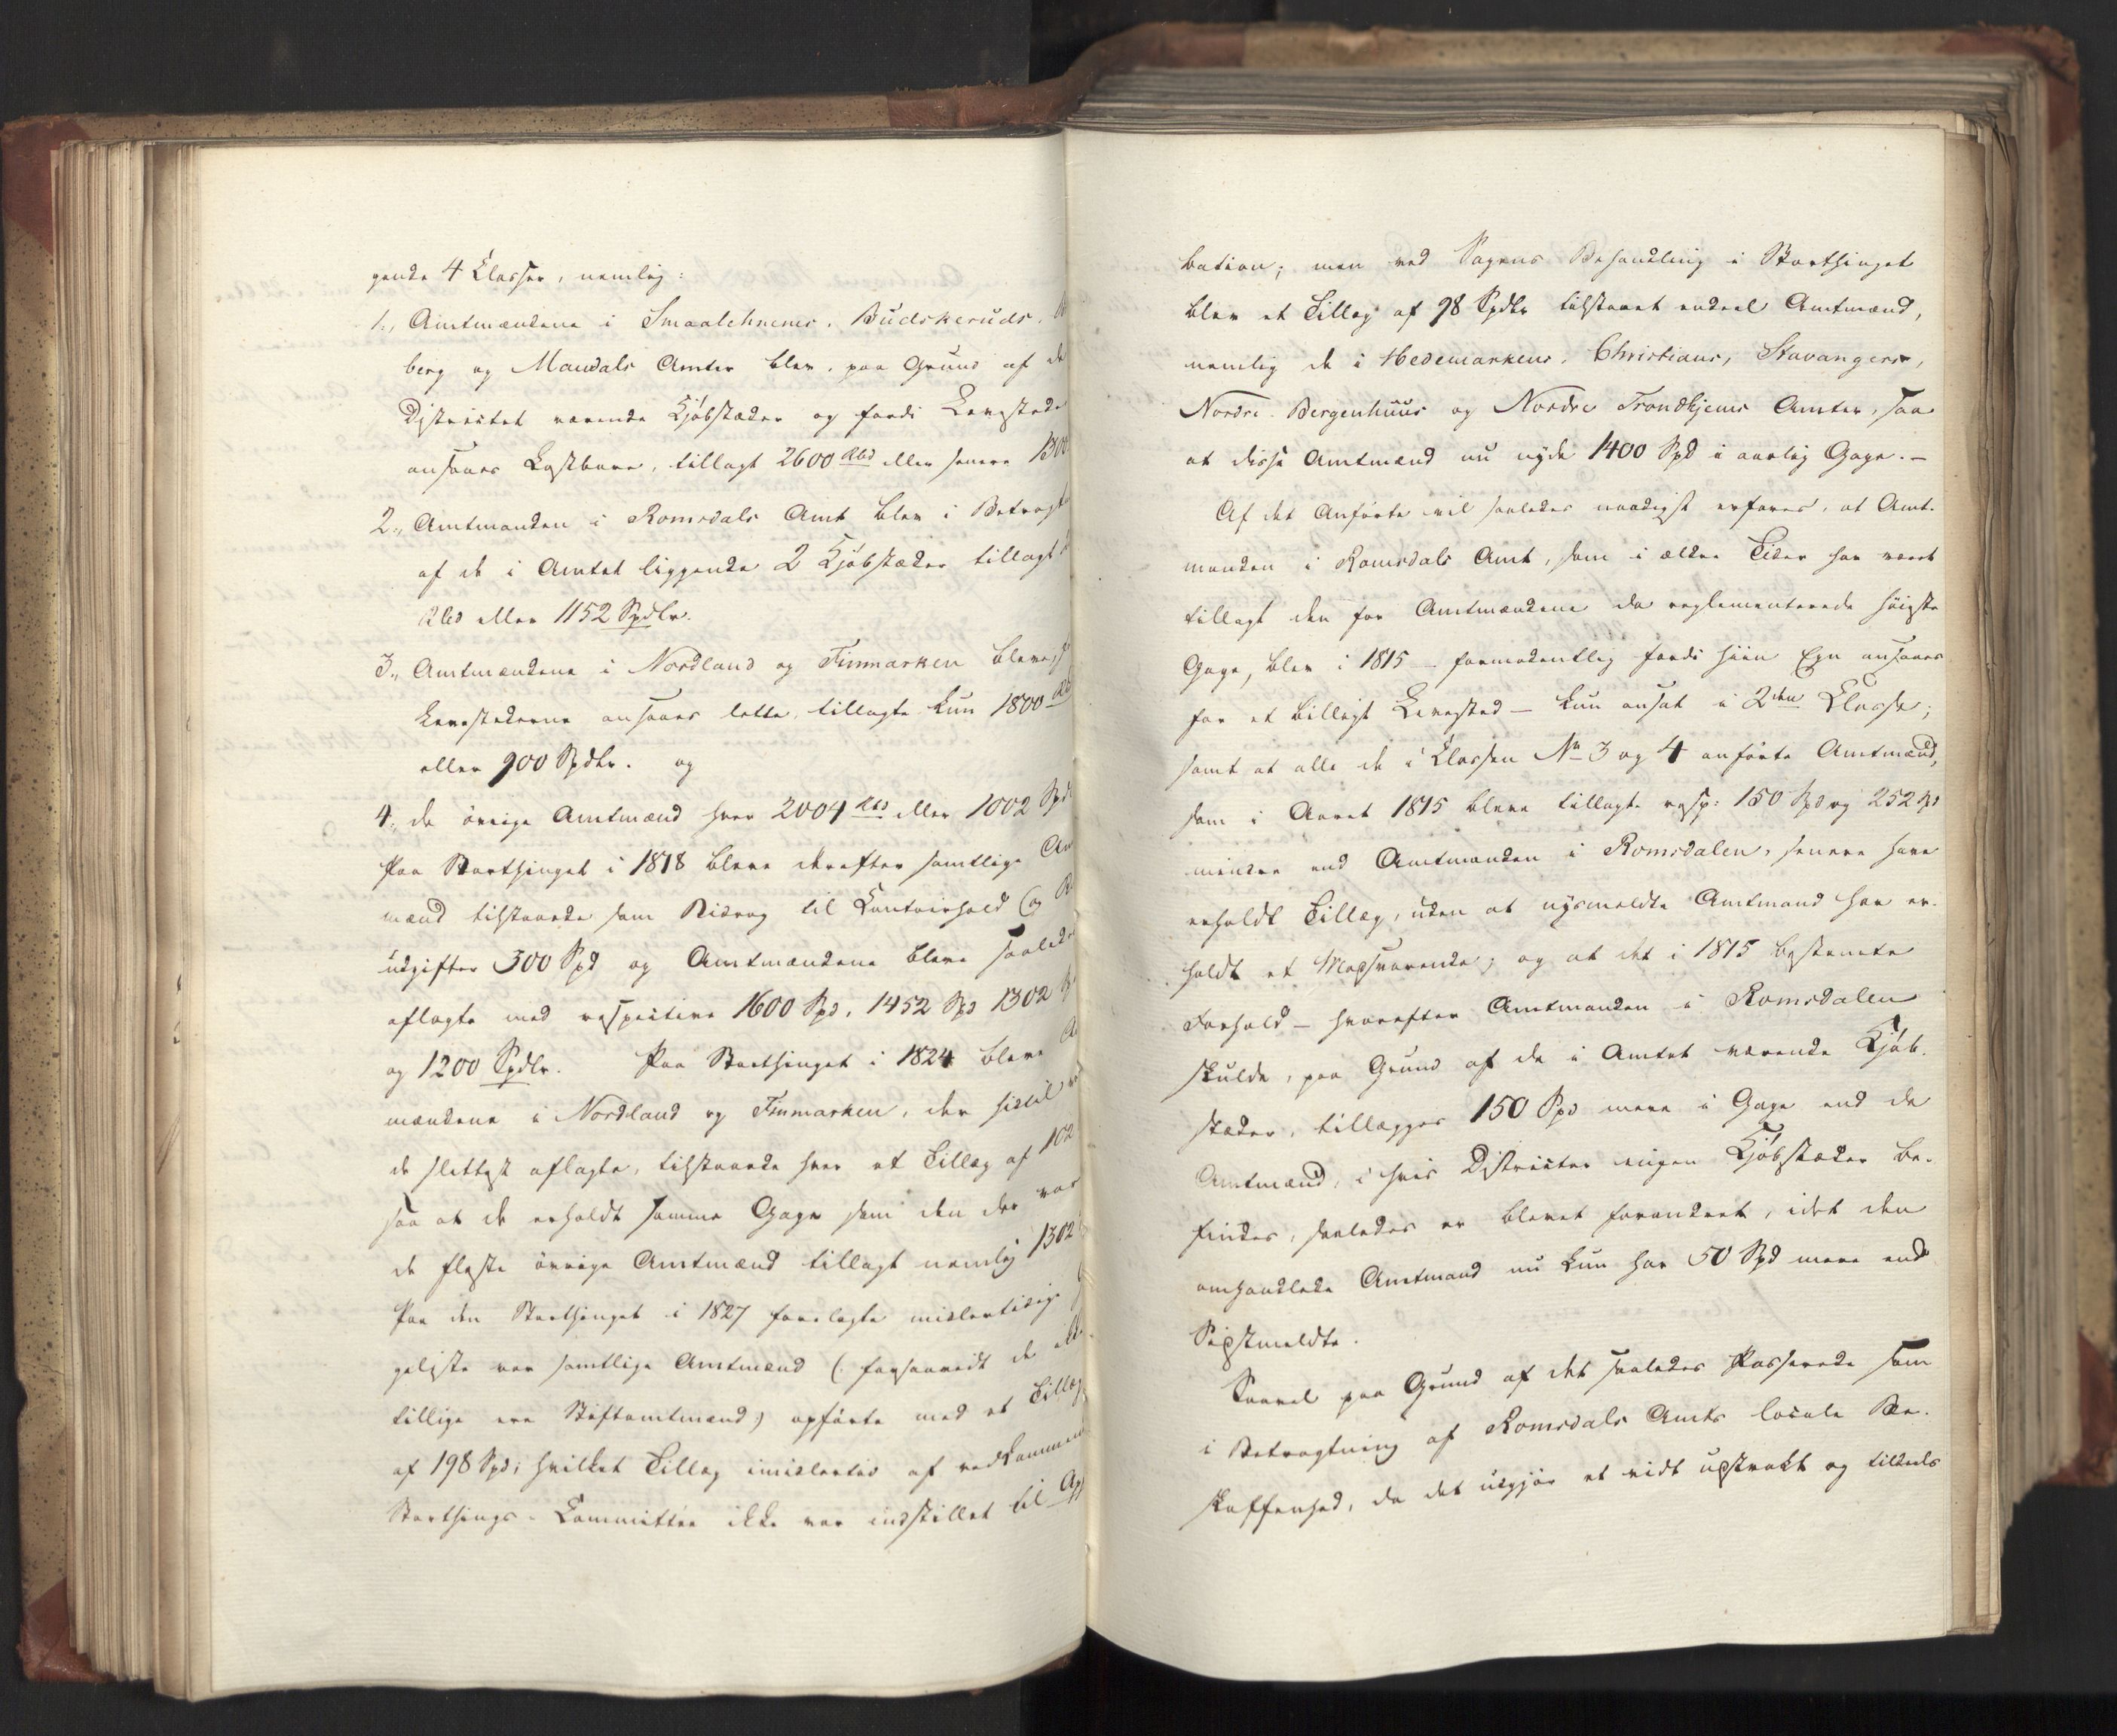 gende 4 Classer, nemlig:
1., Amtmændene i Smaalehnenes, Budskeruds,
berg og Mandals Amter blev, paa Grund af de
Districtet værende Kjøbstæder og fordi Levestedet
ansaaes kostbare, tillagt 2600 Rbd eller senere 1300
2., Amtmanden i Romsdals Amt blev i Betragt
af de i Amtet liggende 2 Kjøbstæder tillagt
Rbd eller 1152 Spdlr.
3., Amtmændene i Nordland og Finmarken bleve,
Levestederne ansaaes lette, tillagte kun 1800 Rbd
eller 900 Spdlr. og
4., de øvrige Amtmænd hver 2004 Rbd eller 1002 Spd
Paa Storthinget i 1818 bleve derefter samtlige Am
mænd tilstaaede som Bidrag til Contoirhold (og
udgifter 300 Spd og Amtmændene bleve saalede
aflagte med respective 1600 Spd, 1452 Spd 1302
og 1200 Spdlr. Paa Storthinget i 1824 bleve
mændene i Nordland og Finmarken, der hidtil
de slettest aflagte, tilstaaede hver et Tillæg af 102
saa at de erholdt samme Gage som den der var
de fleste øvrige Amtmænd tillagt nemlig 1302
Paa den Storthinget i 1827 forelagte midlertidige
geliste var samtlige Amtmænd (forsaavidt de ikke
tillige ere Stiftamtmænd) opførte med et Tillæg
af 198 Spd; hvilket Tillæg imidlertid af vedkommen
Storthings-Committee ikke var indstillet til App
bation; men ved Sagens Behandling i Storthinget
blev et Tillæg af 98 Spdlr tilstaaet endeel Amtmænd,
nemlig de i Hedemarkens, Christians, Stavangers,
Nordre Bergenhuus og Nordre Trondhjems Amter, saa
at disse Amtmænd nu nyde 1400 Spd i aarlig Gage. –
Af det Anførte vil saaledes naadigst erfares, at Amt-
manden i Romsdals Amt, som i ældre Tider har været
tillagt den for Amtmændene da reglementerede høieste
Gage, blev i 1815 – formodentlig fordi hiin Egn ansaaes
for et billigt Levested – kun ansat i 2den Classe;
samt at alle de i Classen No 3 og 4 anførte Amtmænd,
som i Aaret 1815 bleve tillagte resp: 150 Spd og 252 Spd
mindre end Amtmanden i Romsdalen, senere have
erholdt Tillæg, uden at nysmeldte Amtmand har er-
holdt et Modsvarende; og at det i 1815 bestemte
Forhold – hvorefter Amtmanden i Romsdalen
skulde, paa Grund af de i Amtet værende Kjøb-
stæder, tillægges 150 Spd mere i Gage end de
Amtmænd, i hvis Districter ingen Kjøbstæder be-
findes, saaledes er blevet forandret, idet den
omhandlede Amtmand nu kun har 50 Spd mere end
Sidstmeldte.
Saavel paa Grund af det saaledes Passerede som
i Betragtning af Romsdals Amts locale Be-
skaffenhed, da det udgjør et vidt udstrakt og tildeels